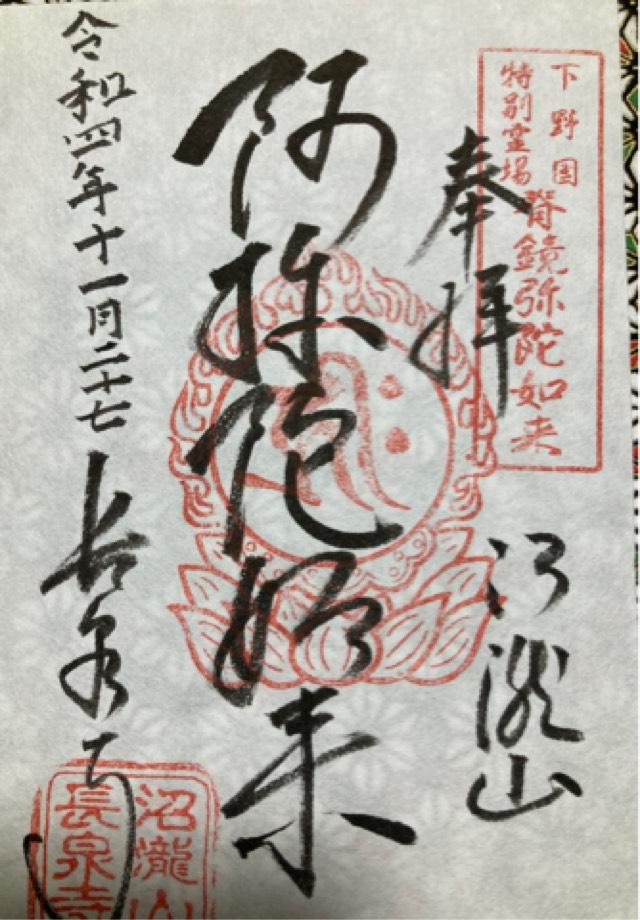 下野国
特別霊場
脊鏡弥陀如来
奉拝
沼瀧山
阿弥陀如来
令和四年十一月二十七
長泉寺
沼瀧山
長泉寺